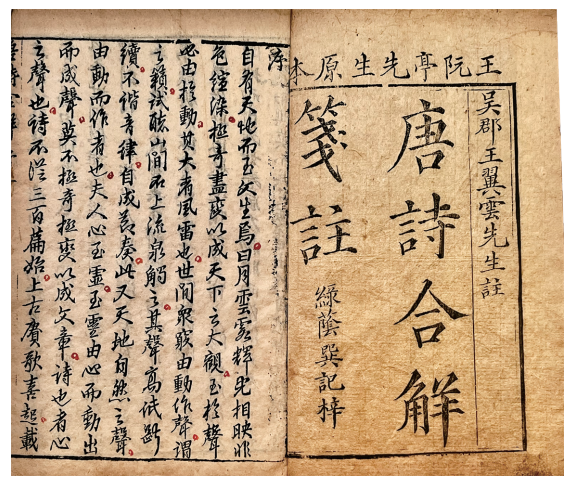 王阮亭先生原本
吳郡王翼雲先生註
唐詩合解
箋註
綠蔭巽記梓
序
自有天地而至文生焉日月雲霞輝光相映非
色渲染極奇盡變以成天下之大觀至於聲
必由於動其大者風雷也世間眾竅由動作聲謂
之籟試聽山間石上流泉觸之其聲高低斷
續不偕音律自成節奏此又天地自然之聲
由動而作者也夫人心至虛至靈由心而動出
而成聲莫不極奇極變以成文章詩也者心
之聲也詩不從三百篇始上古賡歌喜起載